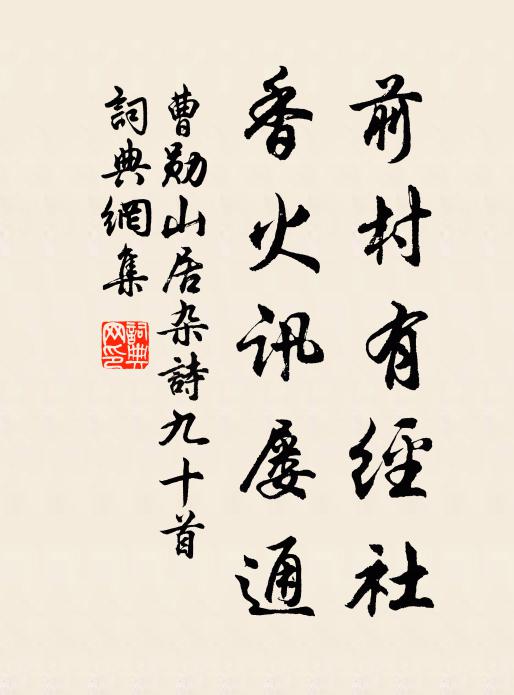 前村有經社
香火訊屡通
曹勛山居杂詩九十首
詞典網集
詞典网印